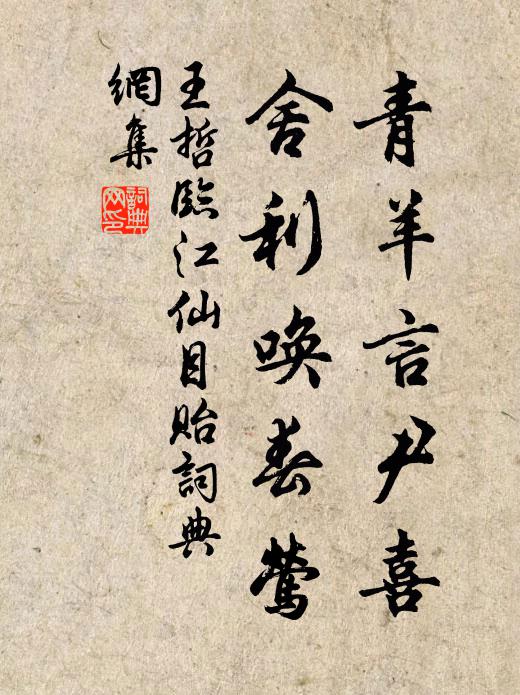 青羊言尹喜
舍利唤春莺
王哲臨江仙目貽詞典
網集
詞典
网印